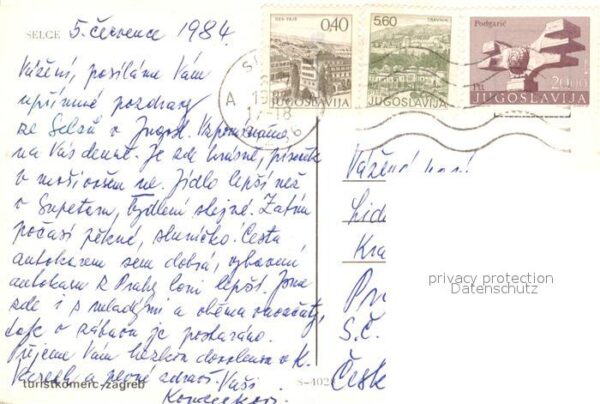 SELCE 5. července 1984.
Vážení, posíláme Vám
upřímné pozdravy
ze Selců v Jugosl. Vzpomínáme
na Vás denně. Je zde krásně, písek
v moři ovšem ne. Jídlo lepší než
v Supetaru, bydlení stejné. Zatím
počasí pěkné, sluníčko. Cesta
autokarem sem dobrá, vybavení
autokaru z Prahy loni lepší. Jsou
zde i s mladými a oběma vnoučaty,
takže o zábavu je postaráno.
Přejeme Vám hezkou dovolenou v K.
Varech a pevné zdraví. Vaši
turistkomerc-zagreb
S-402
NOVI PAZAR
0,40
JUGOSLAVIJA
5,60
TRAVNIK
JUGOSLAVIJA
Podgarić
Ptt
2000
JUGOSLAVIJA
A
17-18
Vážení
Lid
Kra
Pr
S.Č.
Česk
privacy protection
Datenschutz